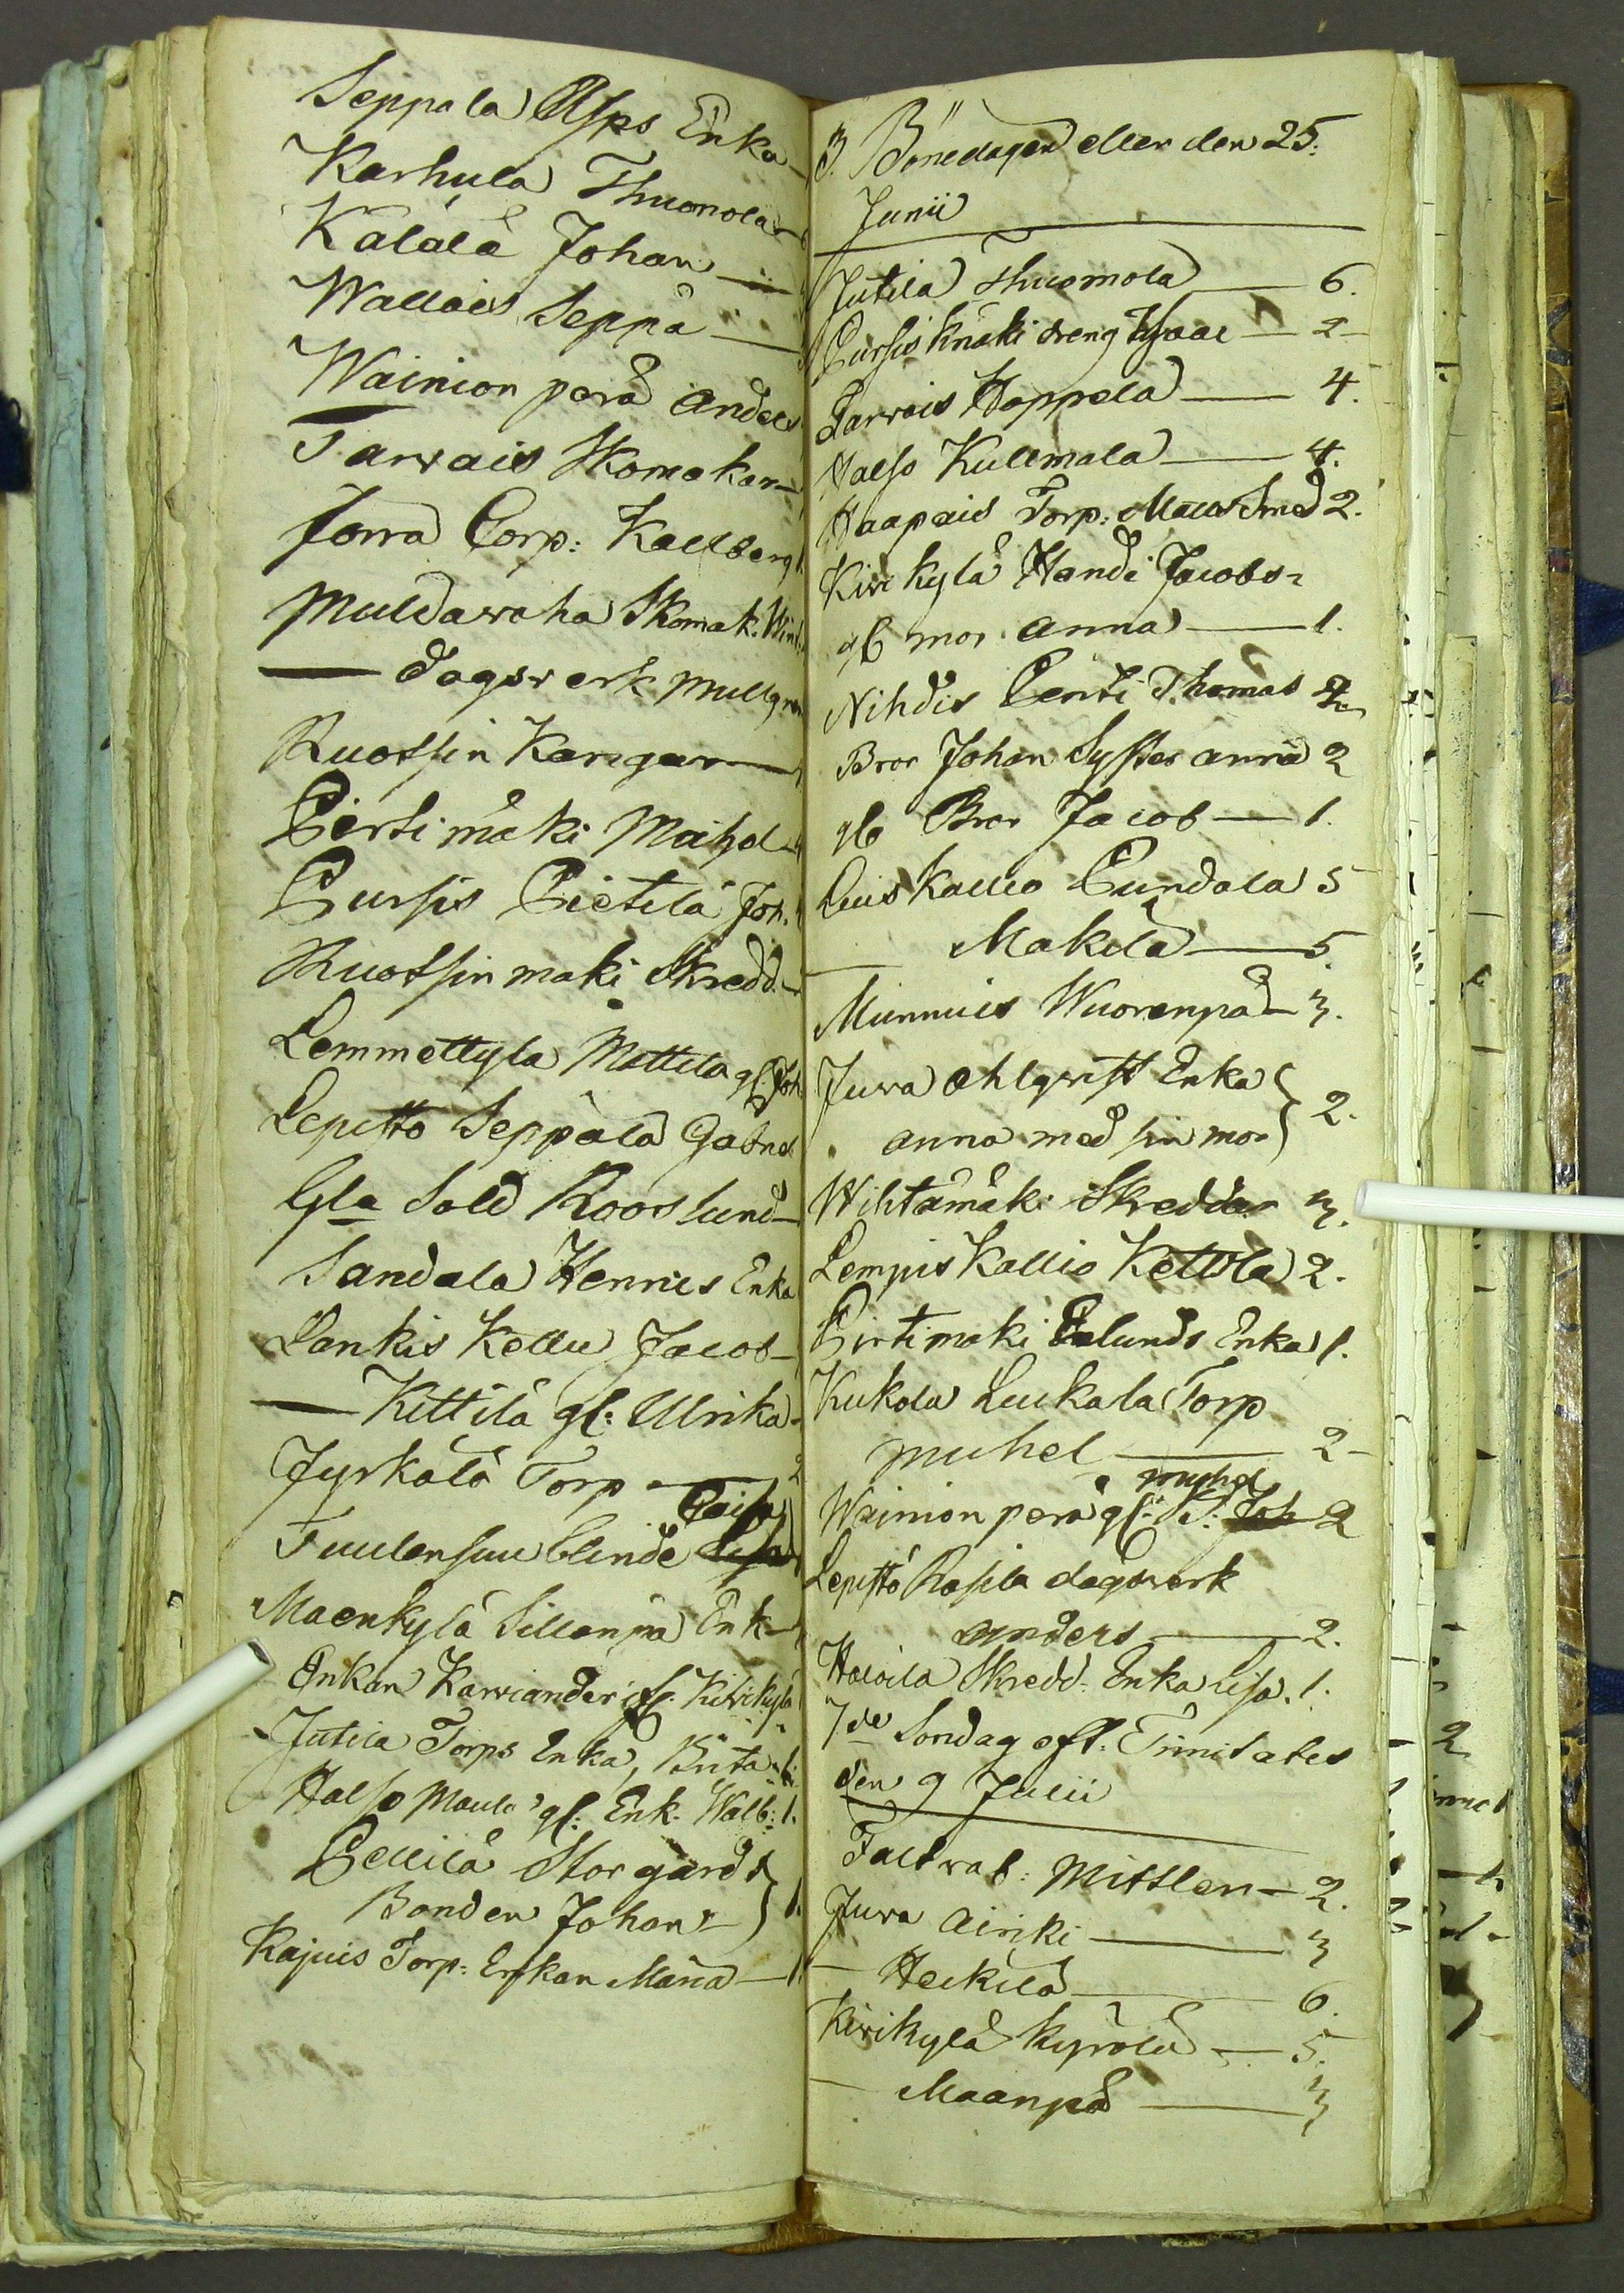 Seppala Alfps Enka
Karhula Thuomola
Kälälä Johan
Wallais Seppä
Wainion perä Anders
Tarvais Skomakar
Jorra Corp: Kallberg 1.
Muldawaha Skomak. Wind
— dagsverk Mullgren
Ruotsin Kangar
Pertimäki Maihel
Pursis Pietilä Joh.
Ruotsin maki Skredd.
Lemmettyla Mattila gl. Joh.
Lepistö Seppälä Gabriel
Gla Sold Rooslund
Sandala Henrics Enka
Lankis Kellu Jacob
— Kittilä gl: Ulrika
Jyrkälä Torp — 2
Caisa
Tuulensuu blinde Lisa
Maenkylä Sillanpä Enk
Enkan Karviander ifr. Kirkkylä
Jutila Torps Enka, Brita 1.
Halso Maula gl: Enk. Walb: 1.
Pellilä Storgårds
Bonden Johan 1.
Kajuis Torp: Enkan Maria — 1.
3. Bönedagen eller den 25:
Junii
Jutila Thuomola — 6.
Pursis Knäki dreng Isaac — 2
Larvais Hoppela — 4.
Halso Kullmala — 4.
Haapais Torp: Matts Smed 2.
Kirkkylä Handi Jacobs
gl mor Anna — 1.
Nihdis Penti Thomas 2
Bror Johan Syster Anna 2
gl Bror Jacob — 1.
Luis Kallio Pundala 5
— Makila — 5.
Munnuis Wuorenpä — 3.
Juva Ahlqvist Enka
Anna med sin mor 2.
Wihtämäki Skreddar 3.
Lempis Kallio Kettola 2.
Pirtimaki Eklunds Enka 1.
Kukola Luckala Torp
Muhel — 2
Myhel
Wainion perä gl: S: Joh 2
Lepistö Rasila dagsverk
Anders — 2.
Heikila Skredd: Enka Lisa. 1.
7de Söndag eft: Trinitatis
den 9 Julii
Faltwab: Mittlen — 2.
Juva Airiki — 3
— Heikilä — 6.
Kirikylä Kyrölä — 5.
— Maanpä — 3